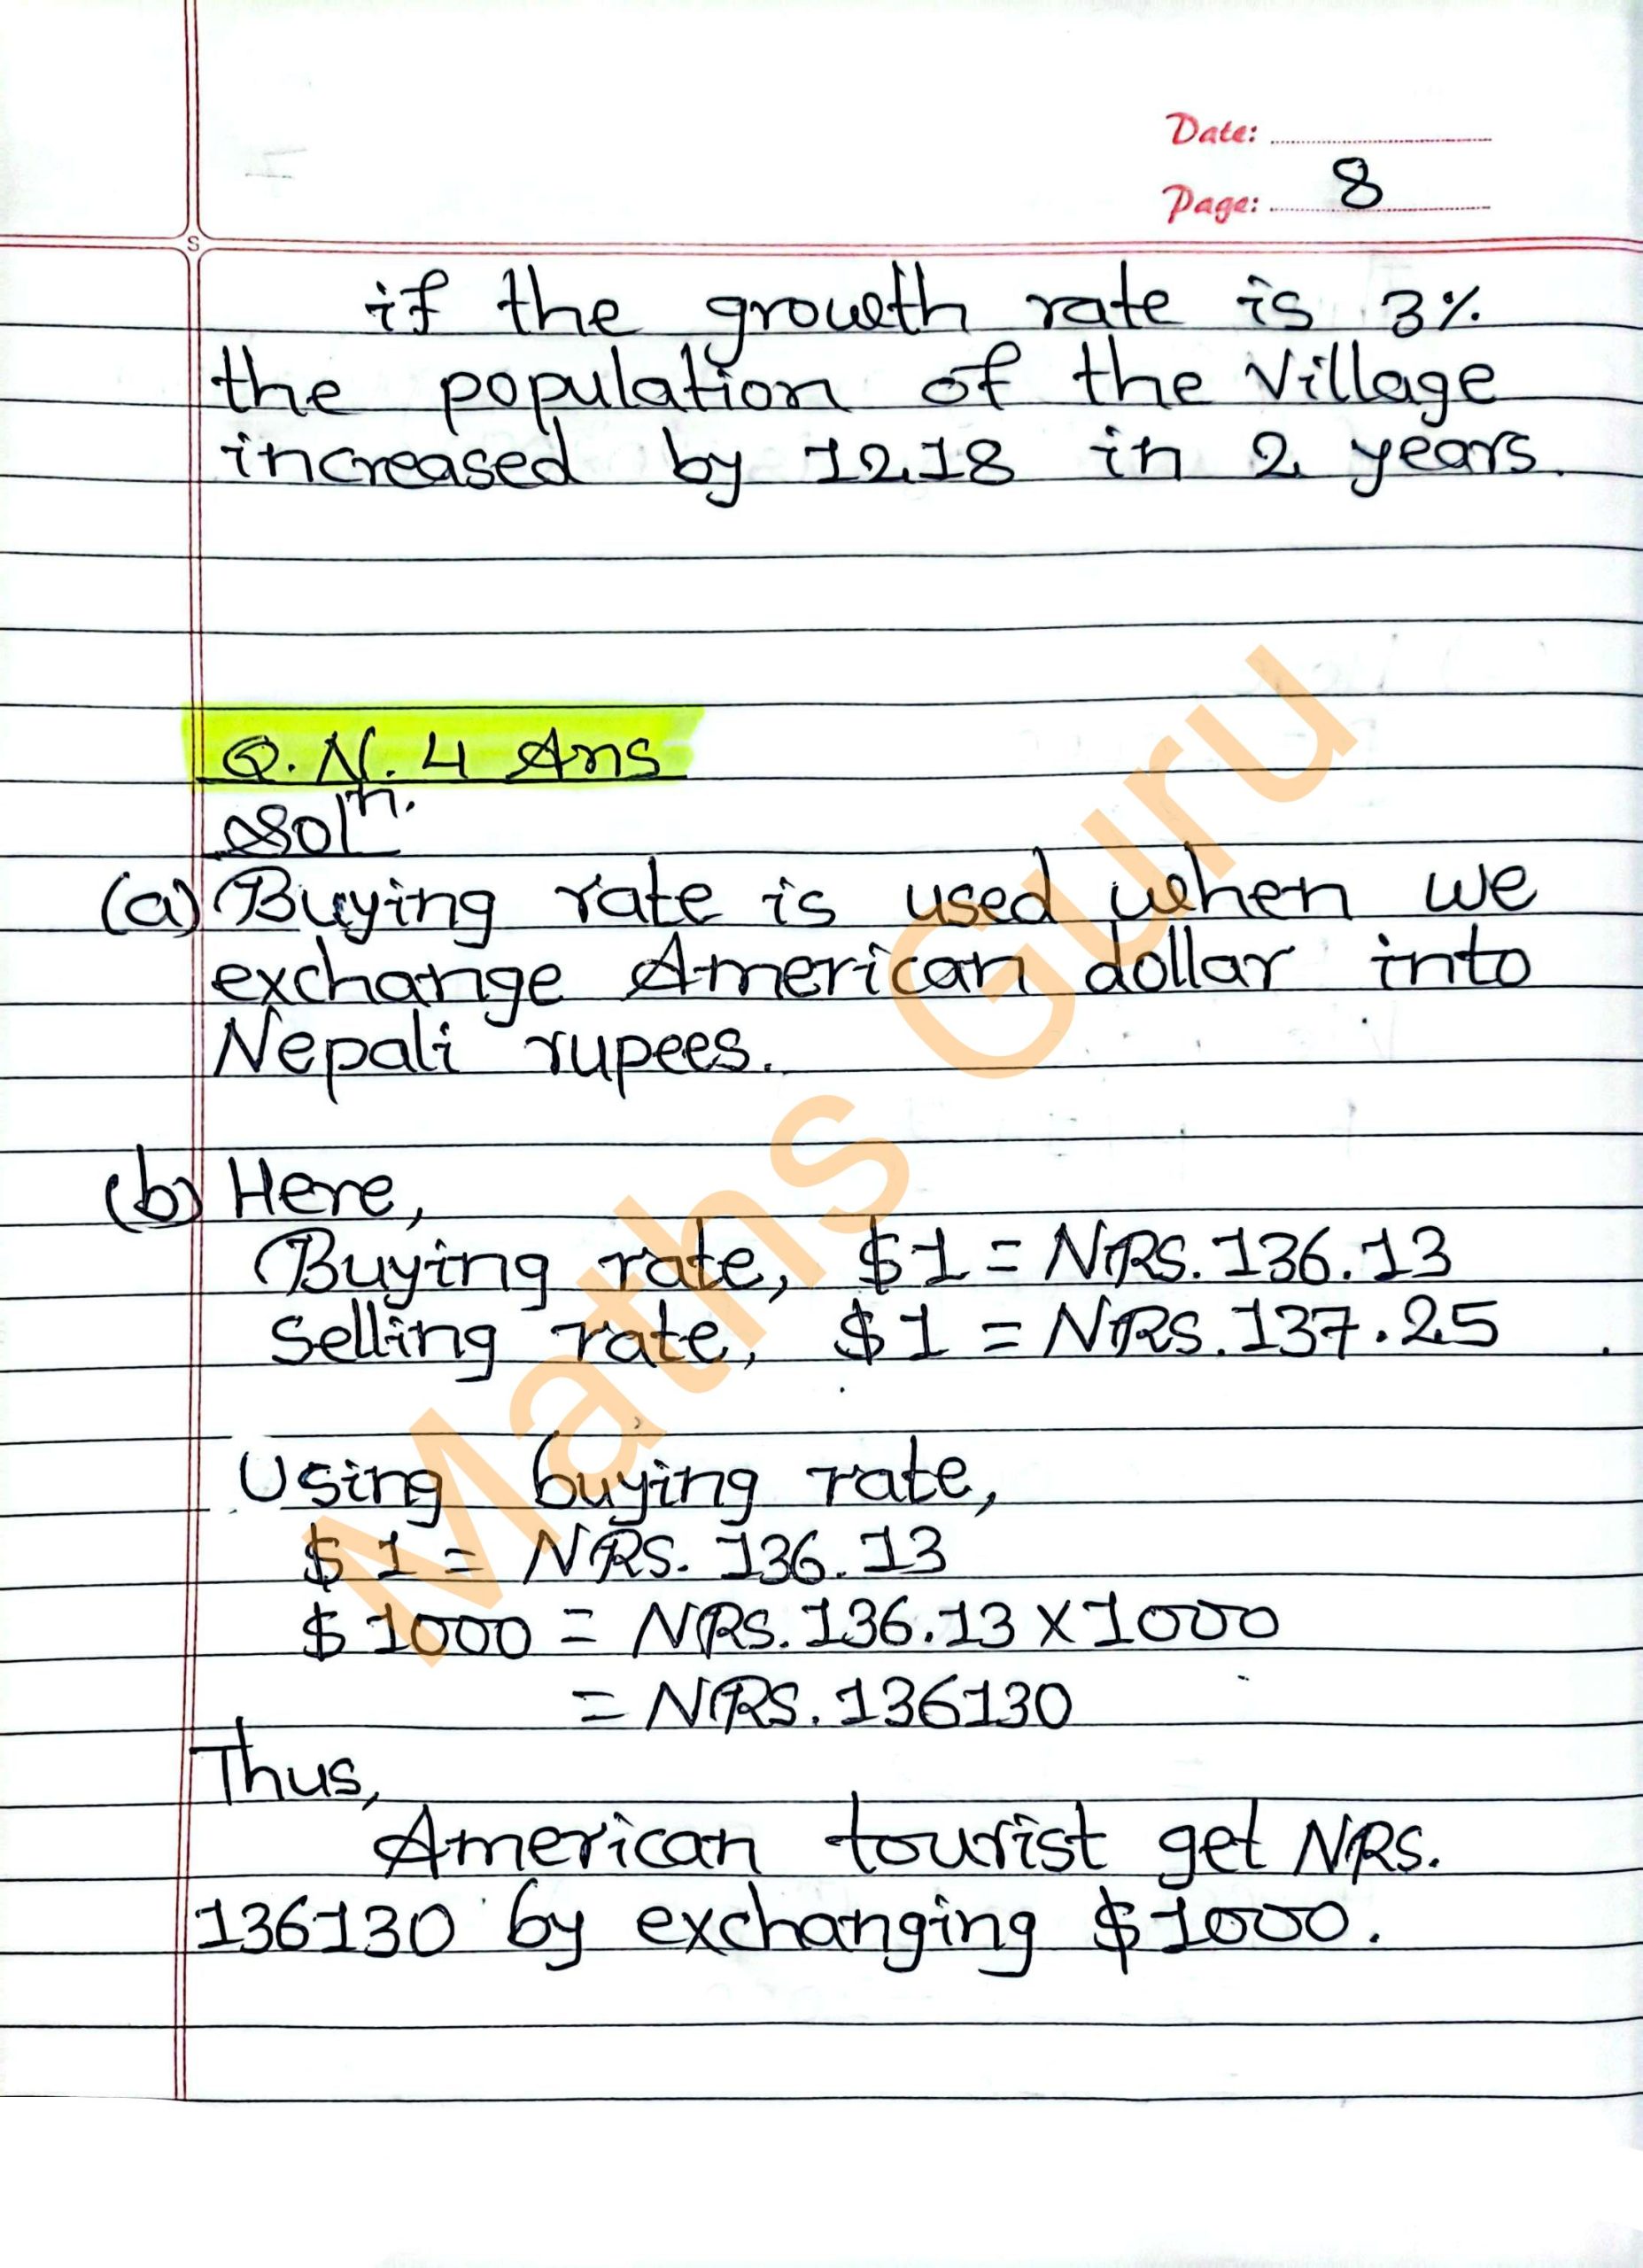 Date:
Page: 8
S
if the growth rate is 3%
the population of the Village
increased by 1218 in 2 years.
Q.N. 4 Ans
Solⁿ.
(a) Buying rate is used when we
exchange American dollar into
Nepali rupees.
(b) Here,
Buying rate, $1 = NRS. 136.13
Selling rate, $1 = NRS. 137.25
Using buying rate,
$ 1 = NRS. 136.13
$ 1000 = NRS. 136.13 X 1000
= NRS. 136130
Thus,
American tourist get NRS.
136130 by exchanging $1000.
Maths Guru